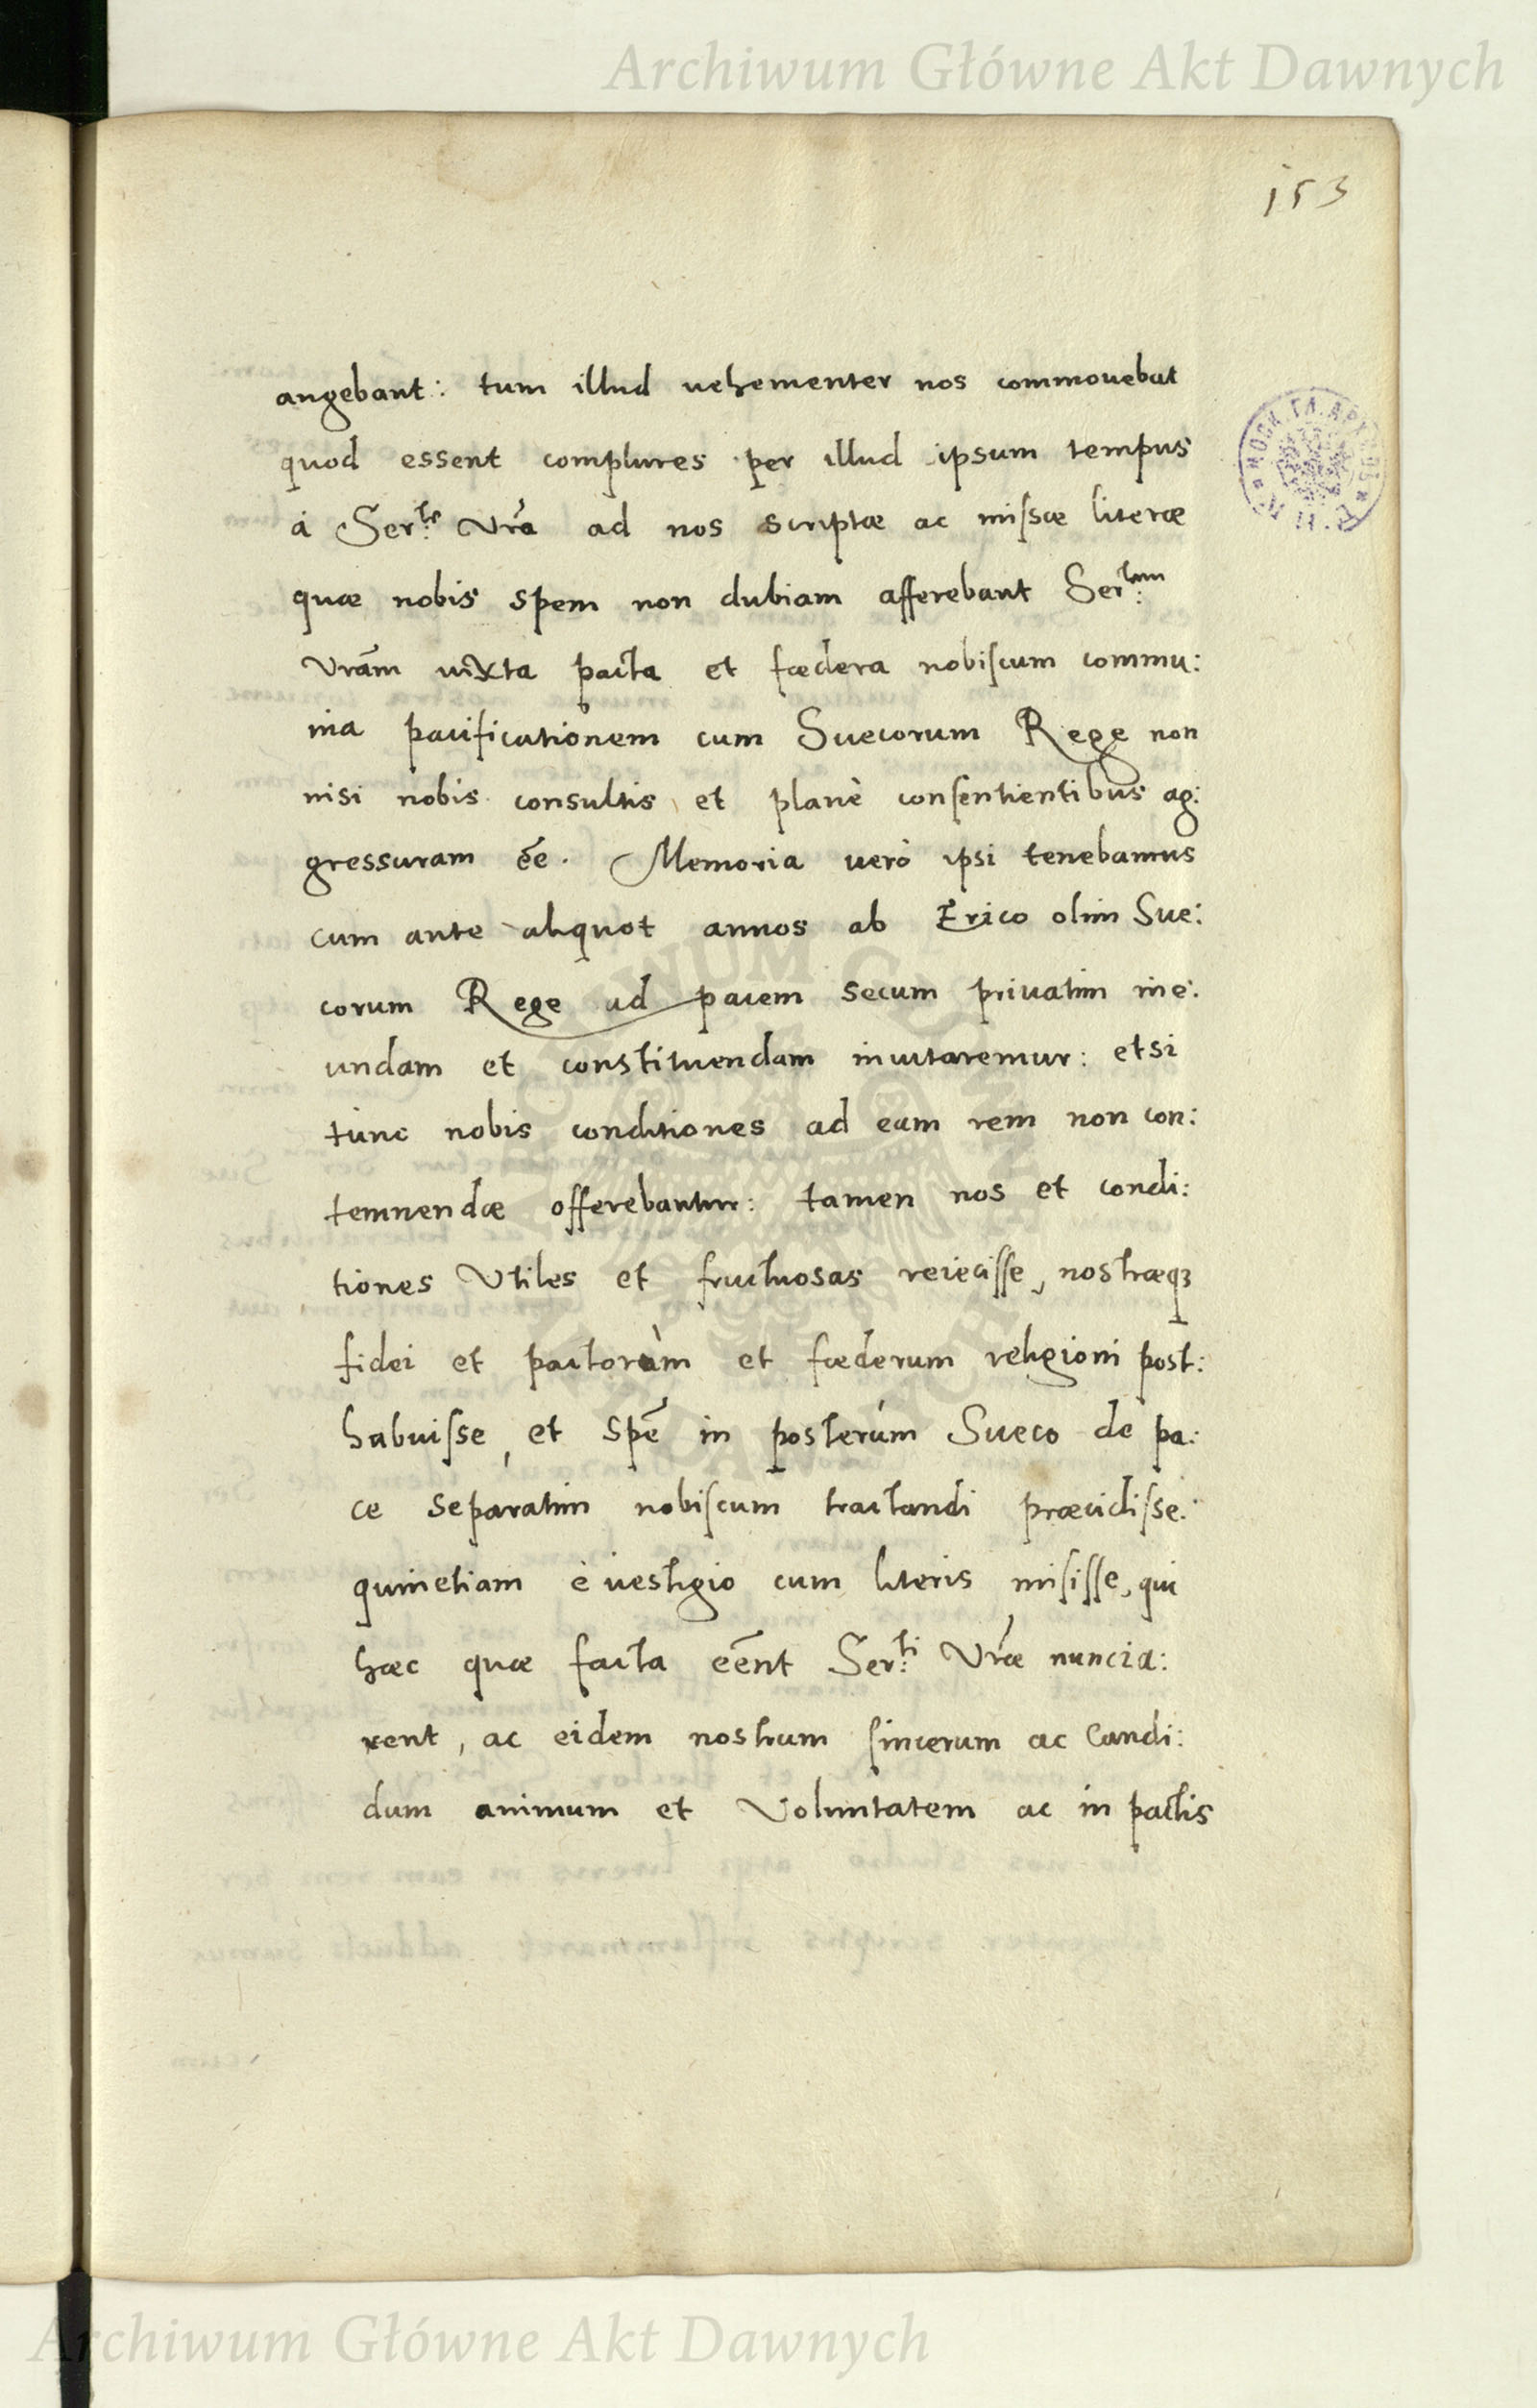 Archiwum Główne Akt Dawnych
153
angebant: tum illud uehementer nos commouebat
quod essent complures per illud ipsum tempus
à Ser:te Vrã ad nos scriptæ ac missæ literæ
quæ nobis spem non dubiam afferebant Ser:tem
Vrãm iuxta pacta et fœdera nobiscum commu:
nia pacificationem cum Suecorum Rege non
nisi nobis consultis et planè consentientibus ag:
gressuram ẽe. Memoria uerò ipsi tenebamus
cum ante aliquot annos ab Erico olim Sue:
corum Rege ad pacem secum priuatim ine:
undam et constituendam inuitaremur: etsi
tunc nobis conditiones ad eam rem non con:
temnendæ offerebantur: tamen nos et condi:
tiones Vtiles et fructuosas reiecisse, nostræq3
fidei et pactorùm et fœderum religioni post:
habuisse, et spẽ in posterúm Sueco de pa:
ce separatim nobiscum tractandi præcidisse:
quinetiam è uestigio cum literis misisse, qui
hæc quæ facta eẽnt Ser:ti Vræ nuncia:
rent, ac eidem nostrum sincerum ac Candi:
dum animum et Voluntatem ac in pactis
Archiwum Główne Akt Dawnych